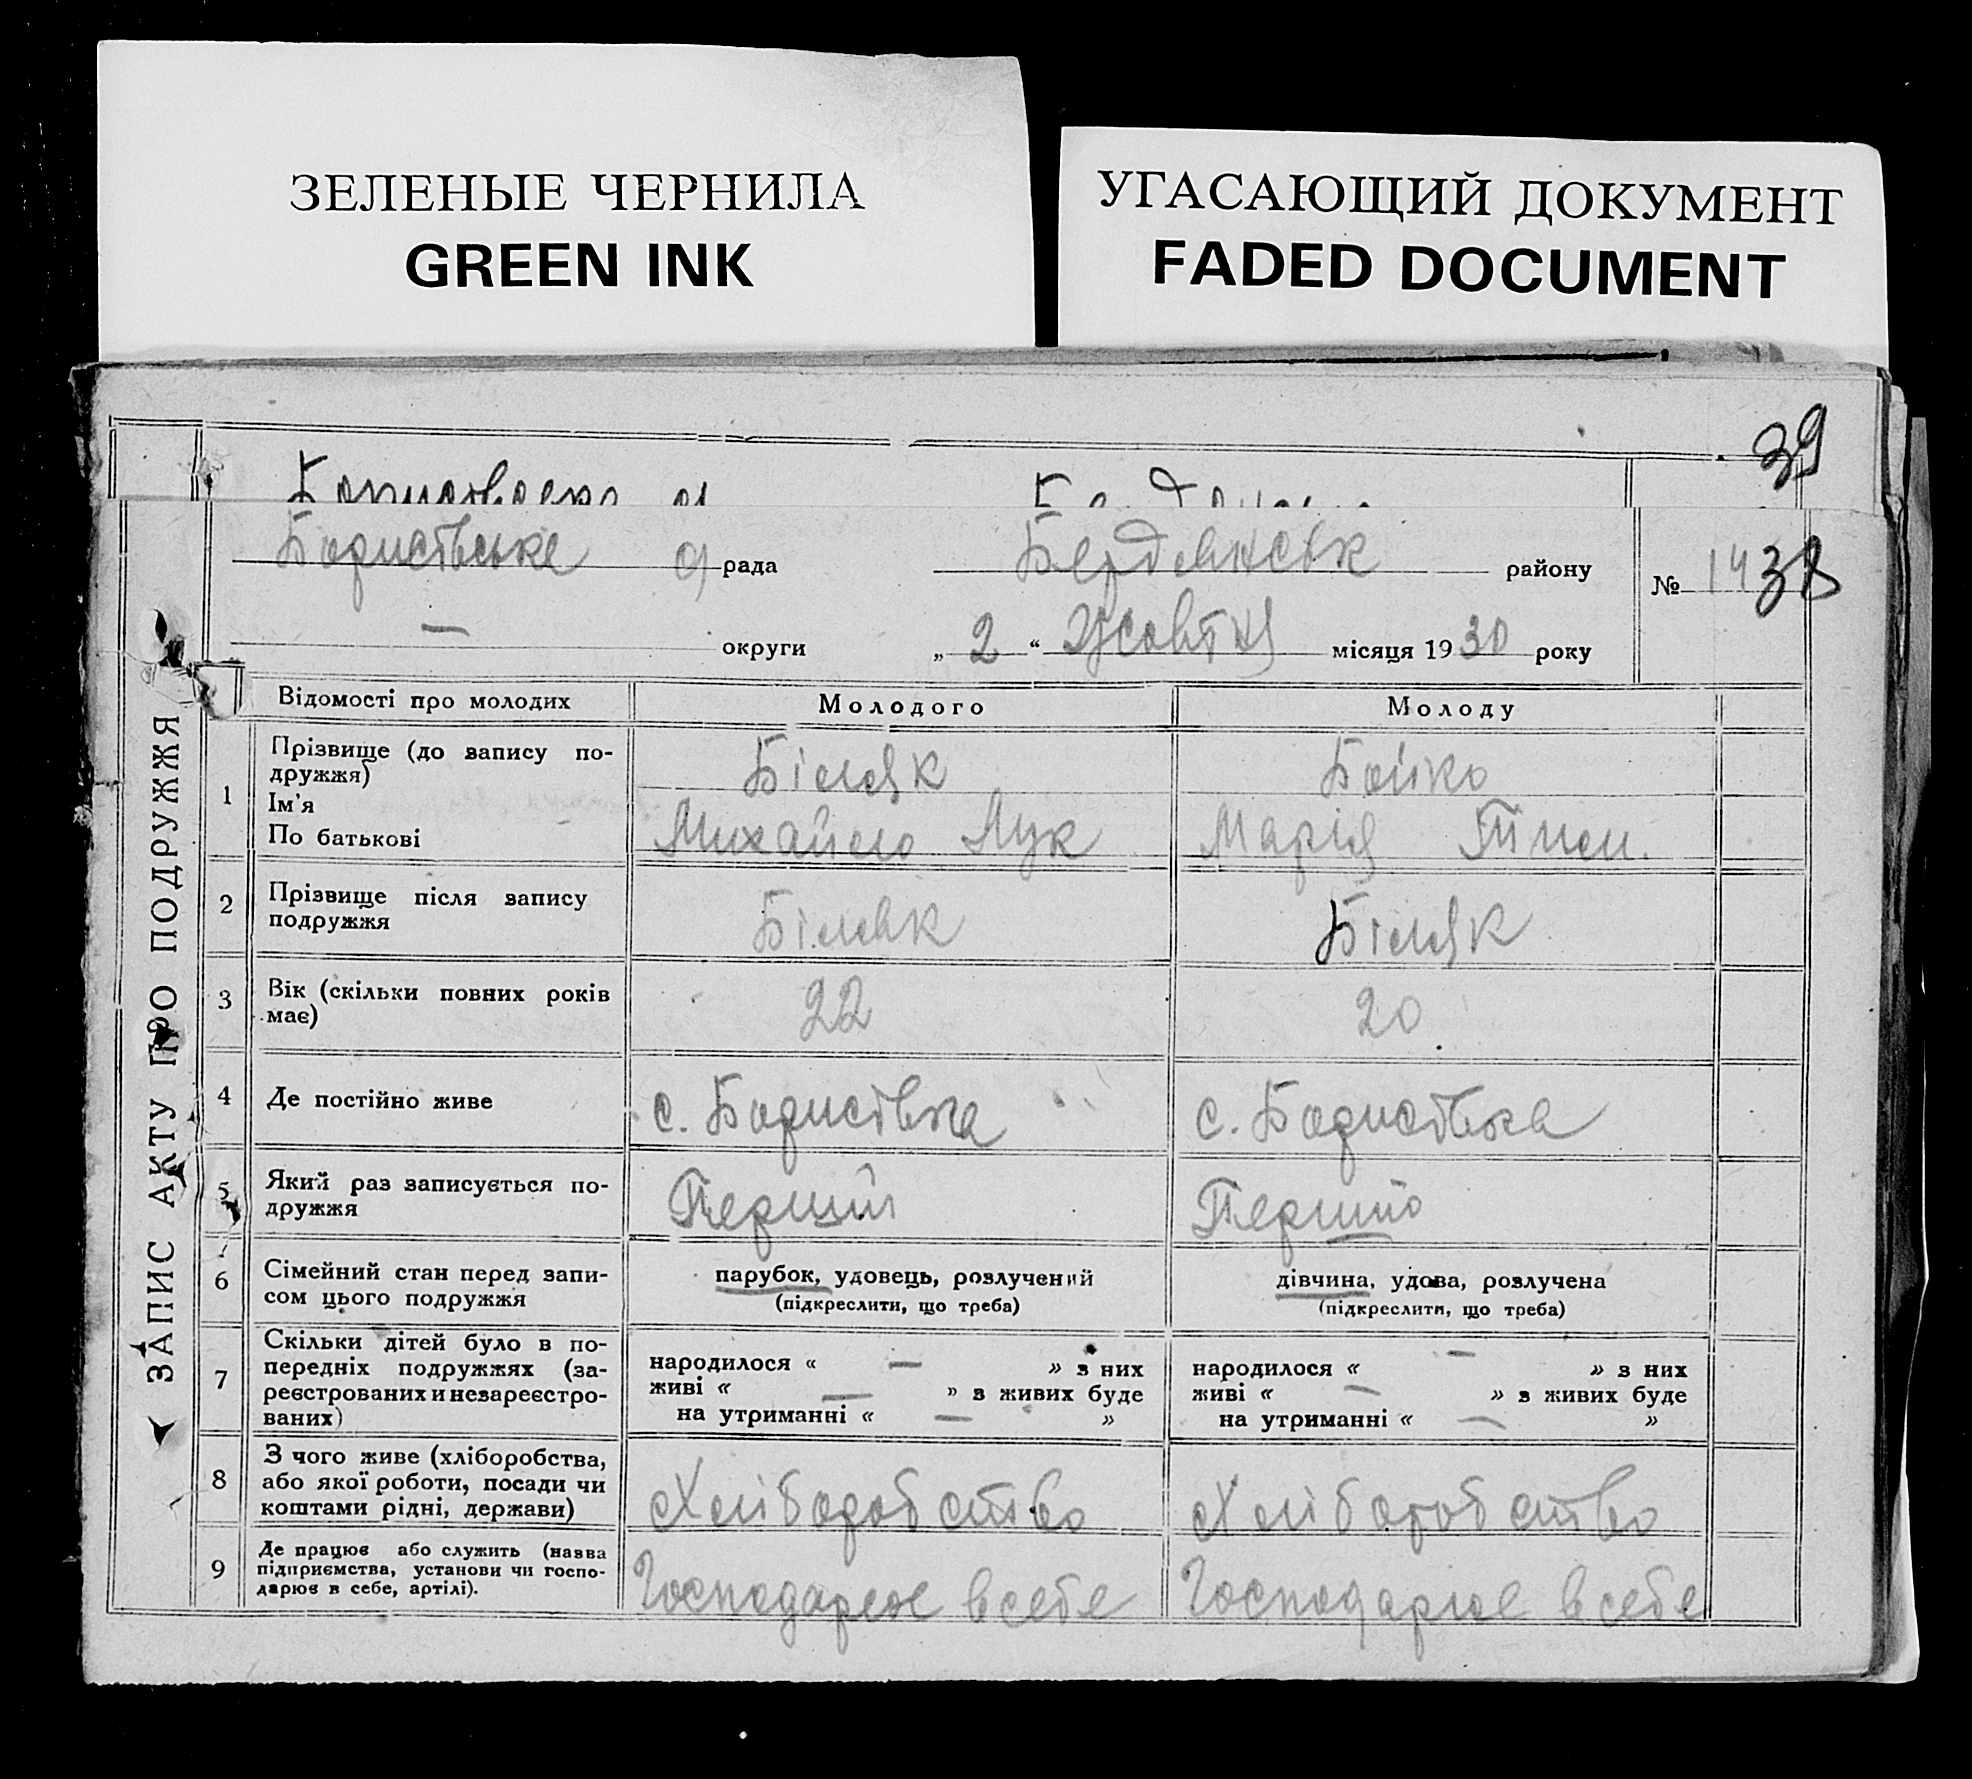 ЗЕЛЕНЫЕ ЧЕРНИЛА
GREEN INK
УГАСАЮЩИЙ ДОКУМЕНТ
FADED DOCUMENT
39
ЗАПИС АКТУ ПРО ПОДРУЖЖЯ
Борисівське рада Бердянськ району № 14 38
— округи „2“ Жовтня місяця 1930 року
Відомості про молодих Молодого Молоду
1 Прізвище (до запису подружжя) Біляк Бойко
Ім'я
По батькові Михайло Лук Марія Тим.
2 Прізвище після запису подружжя Біляк Біляк
3 Вік (скільки повних років має) 22 20
4 Де постійно живе с. Борисівка с. Борисівка
5 Який раз записується подружжя Перший
6 Сімейний стан перед записом цього подружжя парубок, удовець, розлучений дівчина, удова, розлучена
(підкреслити, що треба) (підкреслити, що треба)
7 Скільки дітей було в попередніх подружжях (зареєстрованих и незареєстрованих)
народилося « — » з них народилося « — » з них
живі « — » з живих буде живі « — » з живих буде
на утриманні « — » на утриманні « — »
8 З чого живе (хліборобства, або якої роботи, посади чи коштами рідні, держави) Хліборобство Хліборобство
9 Де працює або служить (назва підприємства, установи чи господарює в себе, артілі). Господарює в себе Господарює в себе